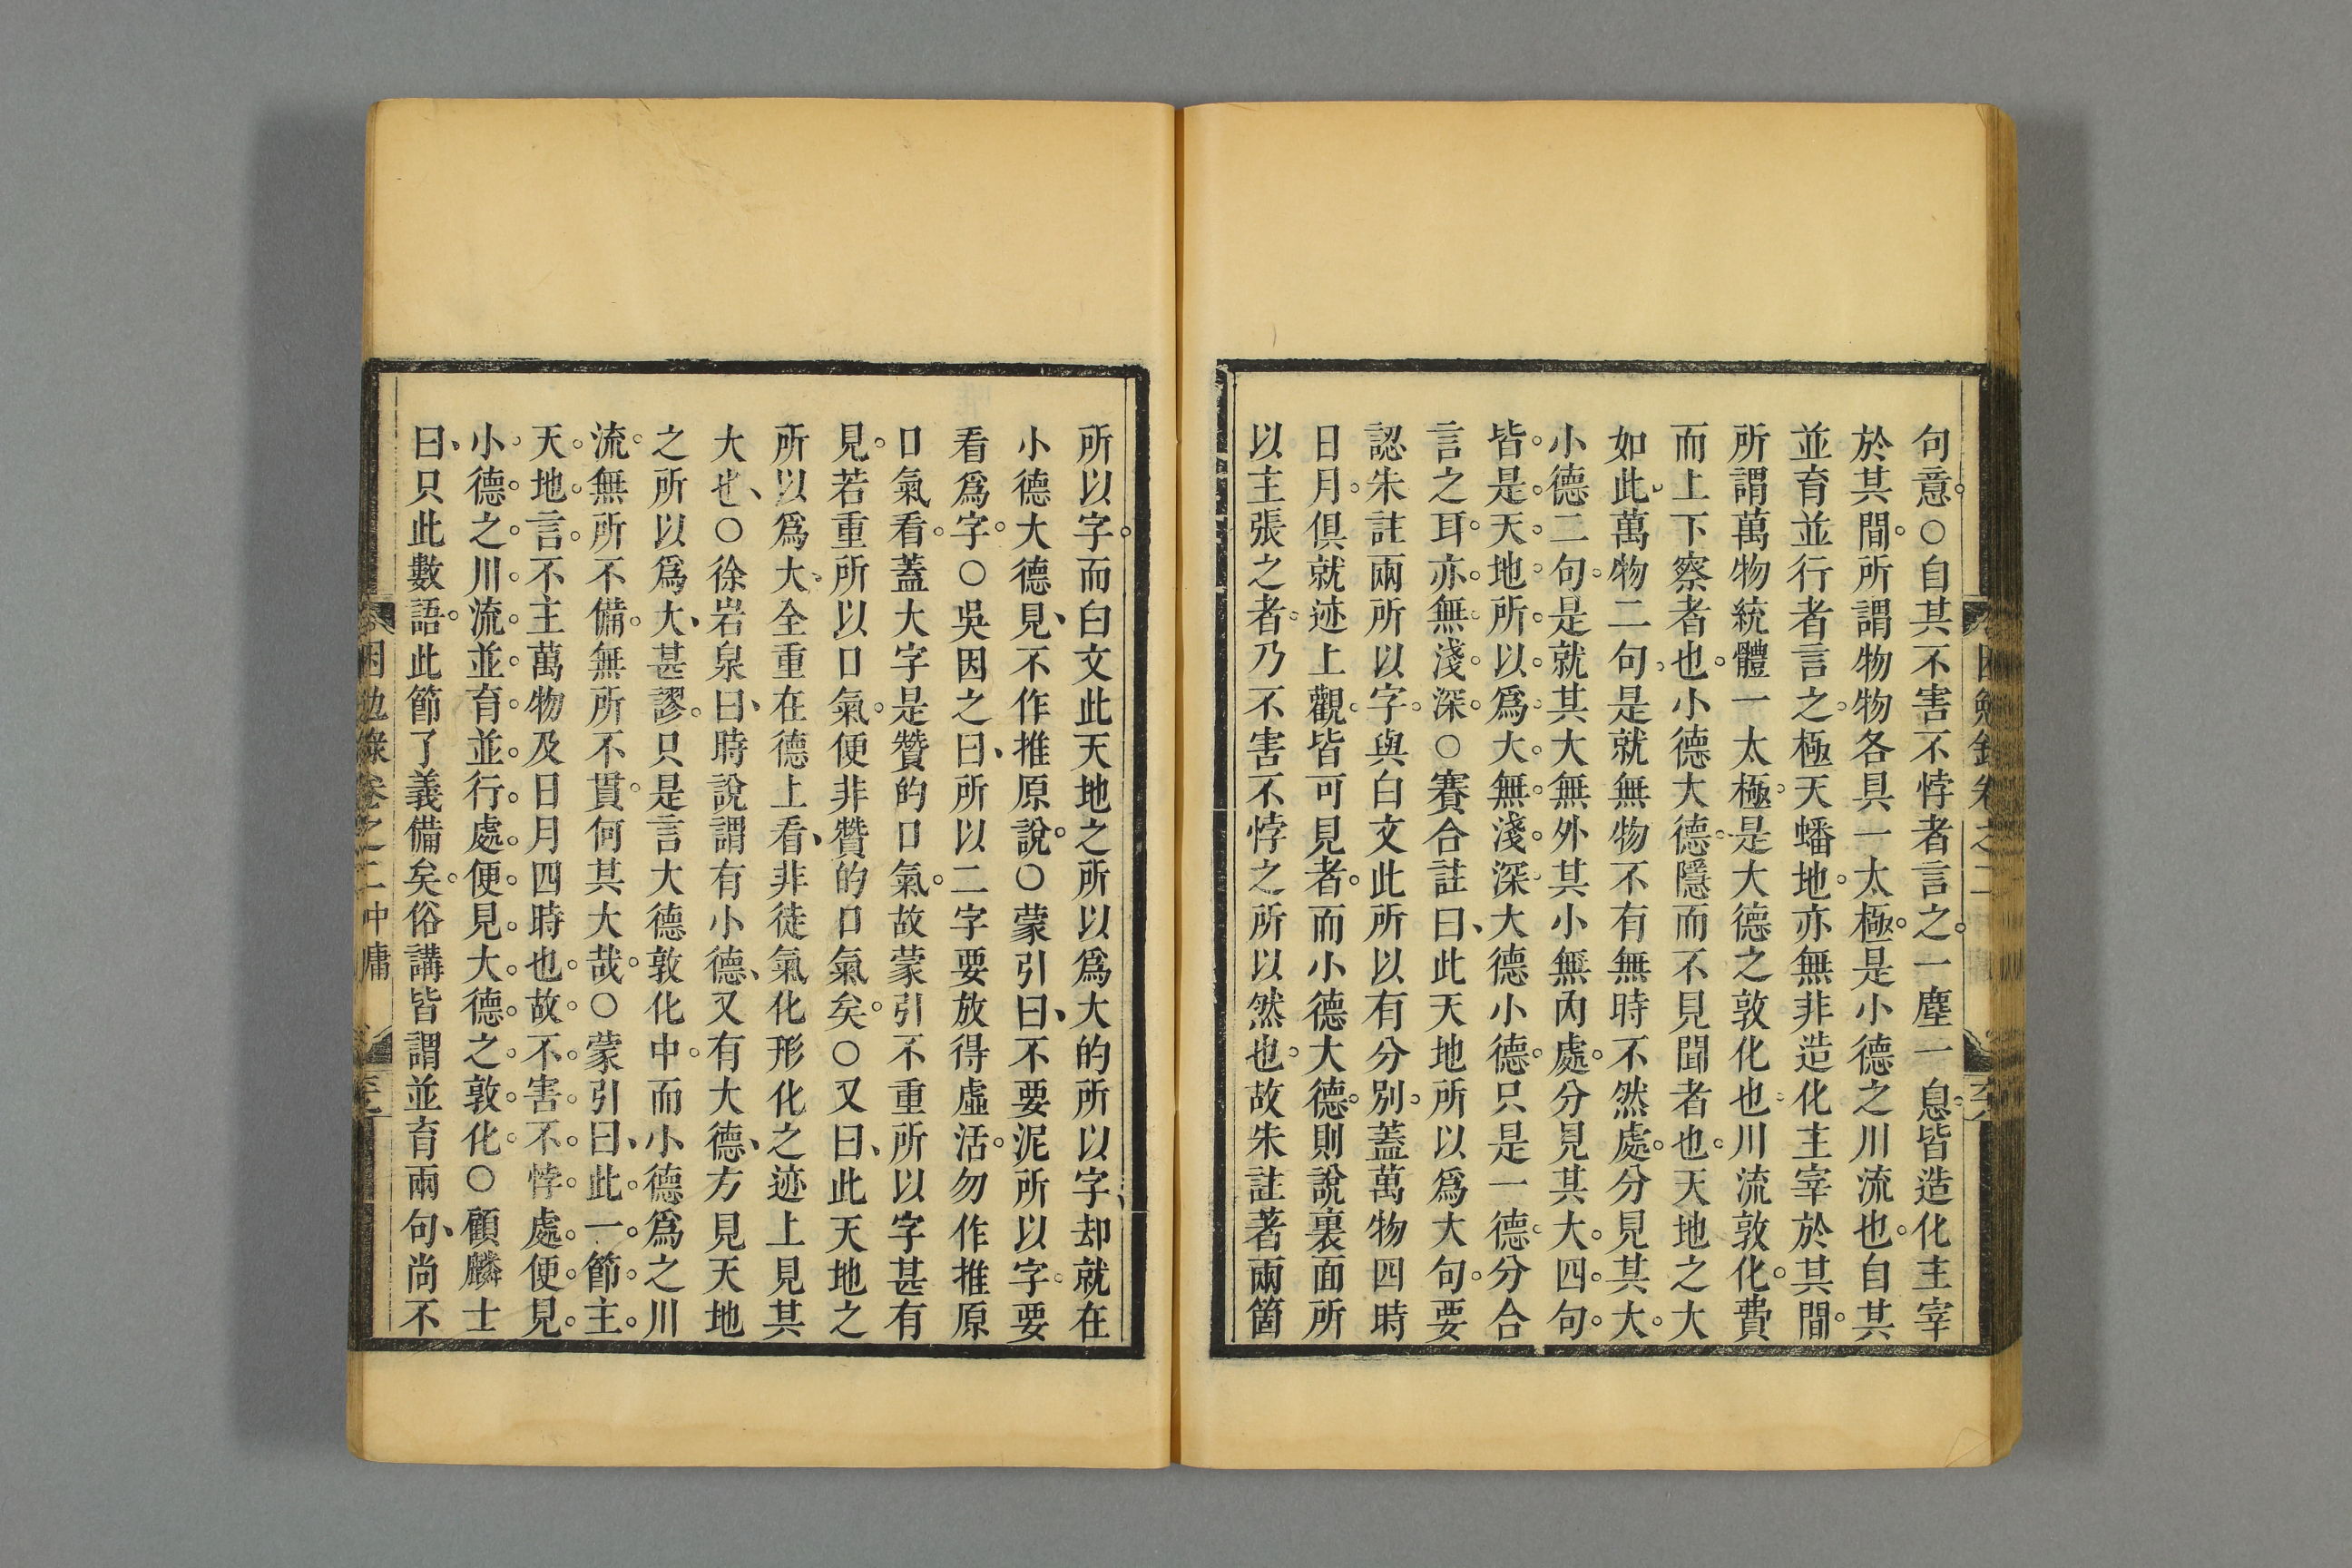 句意。○自其不害不悖者言之。一塵一息皆造化主宰
於其間。所謂物物各具一太極。是小德之川流也。自其
並育並行者言之。極天蟠地。亦無非造化主宰於其間。
所謂萬物統體一太極。是大德之敦化也。川流敦化。費
而上下察者也。小德大德。隱而不見聞者也。天地之大
如此。萬物二句。是就無物不有無時不然處。分見其大。
小德二句。是就其大無外其小無內處。分見其大。四句。
皆是天地所以爲大。無淺深。大德小德。只是一德。分合
言之耳。亦無淺深。○賽合註曰、此天地所以爲大句。要
認朱註兩所以字。與白文此所以有分別。蓋萬物四時
日月。俱就迹上觀。皆可見者。而小德大德。則說裏面所
以主張之者。乃不害不悖之所以然也。故朱註著兩箇
困勉錄卷之二
所以字。而白文此天地之所以爲大的所以字、却就在
小德大德見、不作推原說。○蒙引曰、不要泥所以字。要
看爲字。○吳因之曰、所以二字要放得虛活。勿作推原
口氣看。蓋大字是贊的口氣。故蒙引不重所以字甚有
見。若重所以口氣。便非贊的口氣矣。○又曰、此天地之
所以爲大。全重在德上看、非徒氣化形化之迹上見其
大也、○徐岩泉曰、時說謂有小德、又有大德、方見天地
之所以爲大、甚謬。只是言大德敦化中。而小德爲之川
流。無所不備。無所不貫。何其大哉。○蒙引曰、此一節主
天地言。不主萬物及日月四時也。故不害不悖處。便見
小德之川流。並育並行處。便見大德之敦化。○顧麟士
曰、只此數語。此節了義備矣。俗講皆謂並育兩句、尚不
困勉錄卷之二 中庸